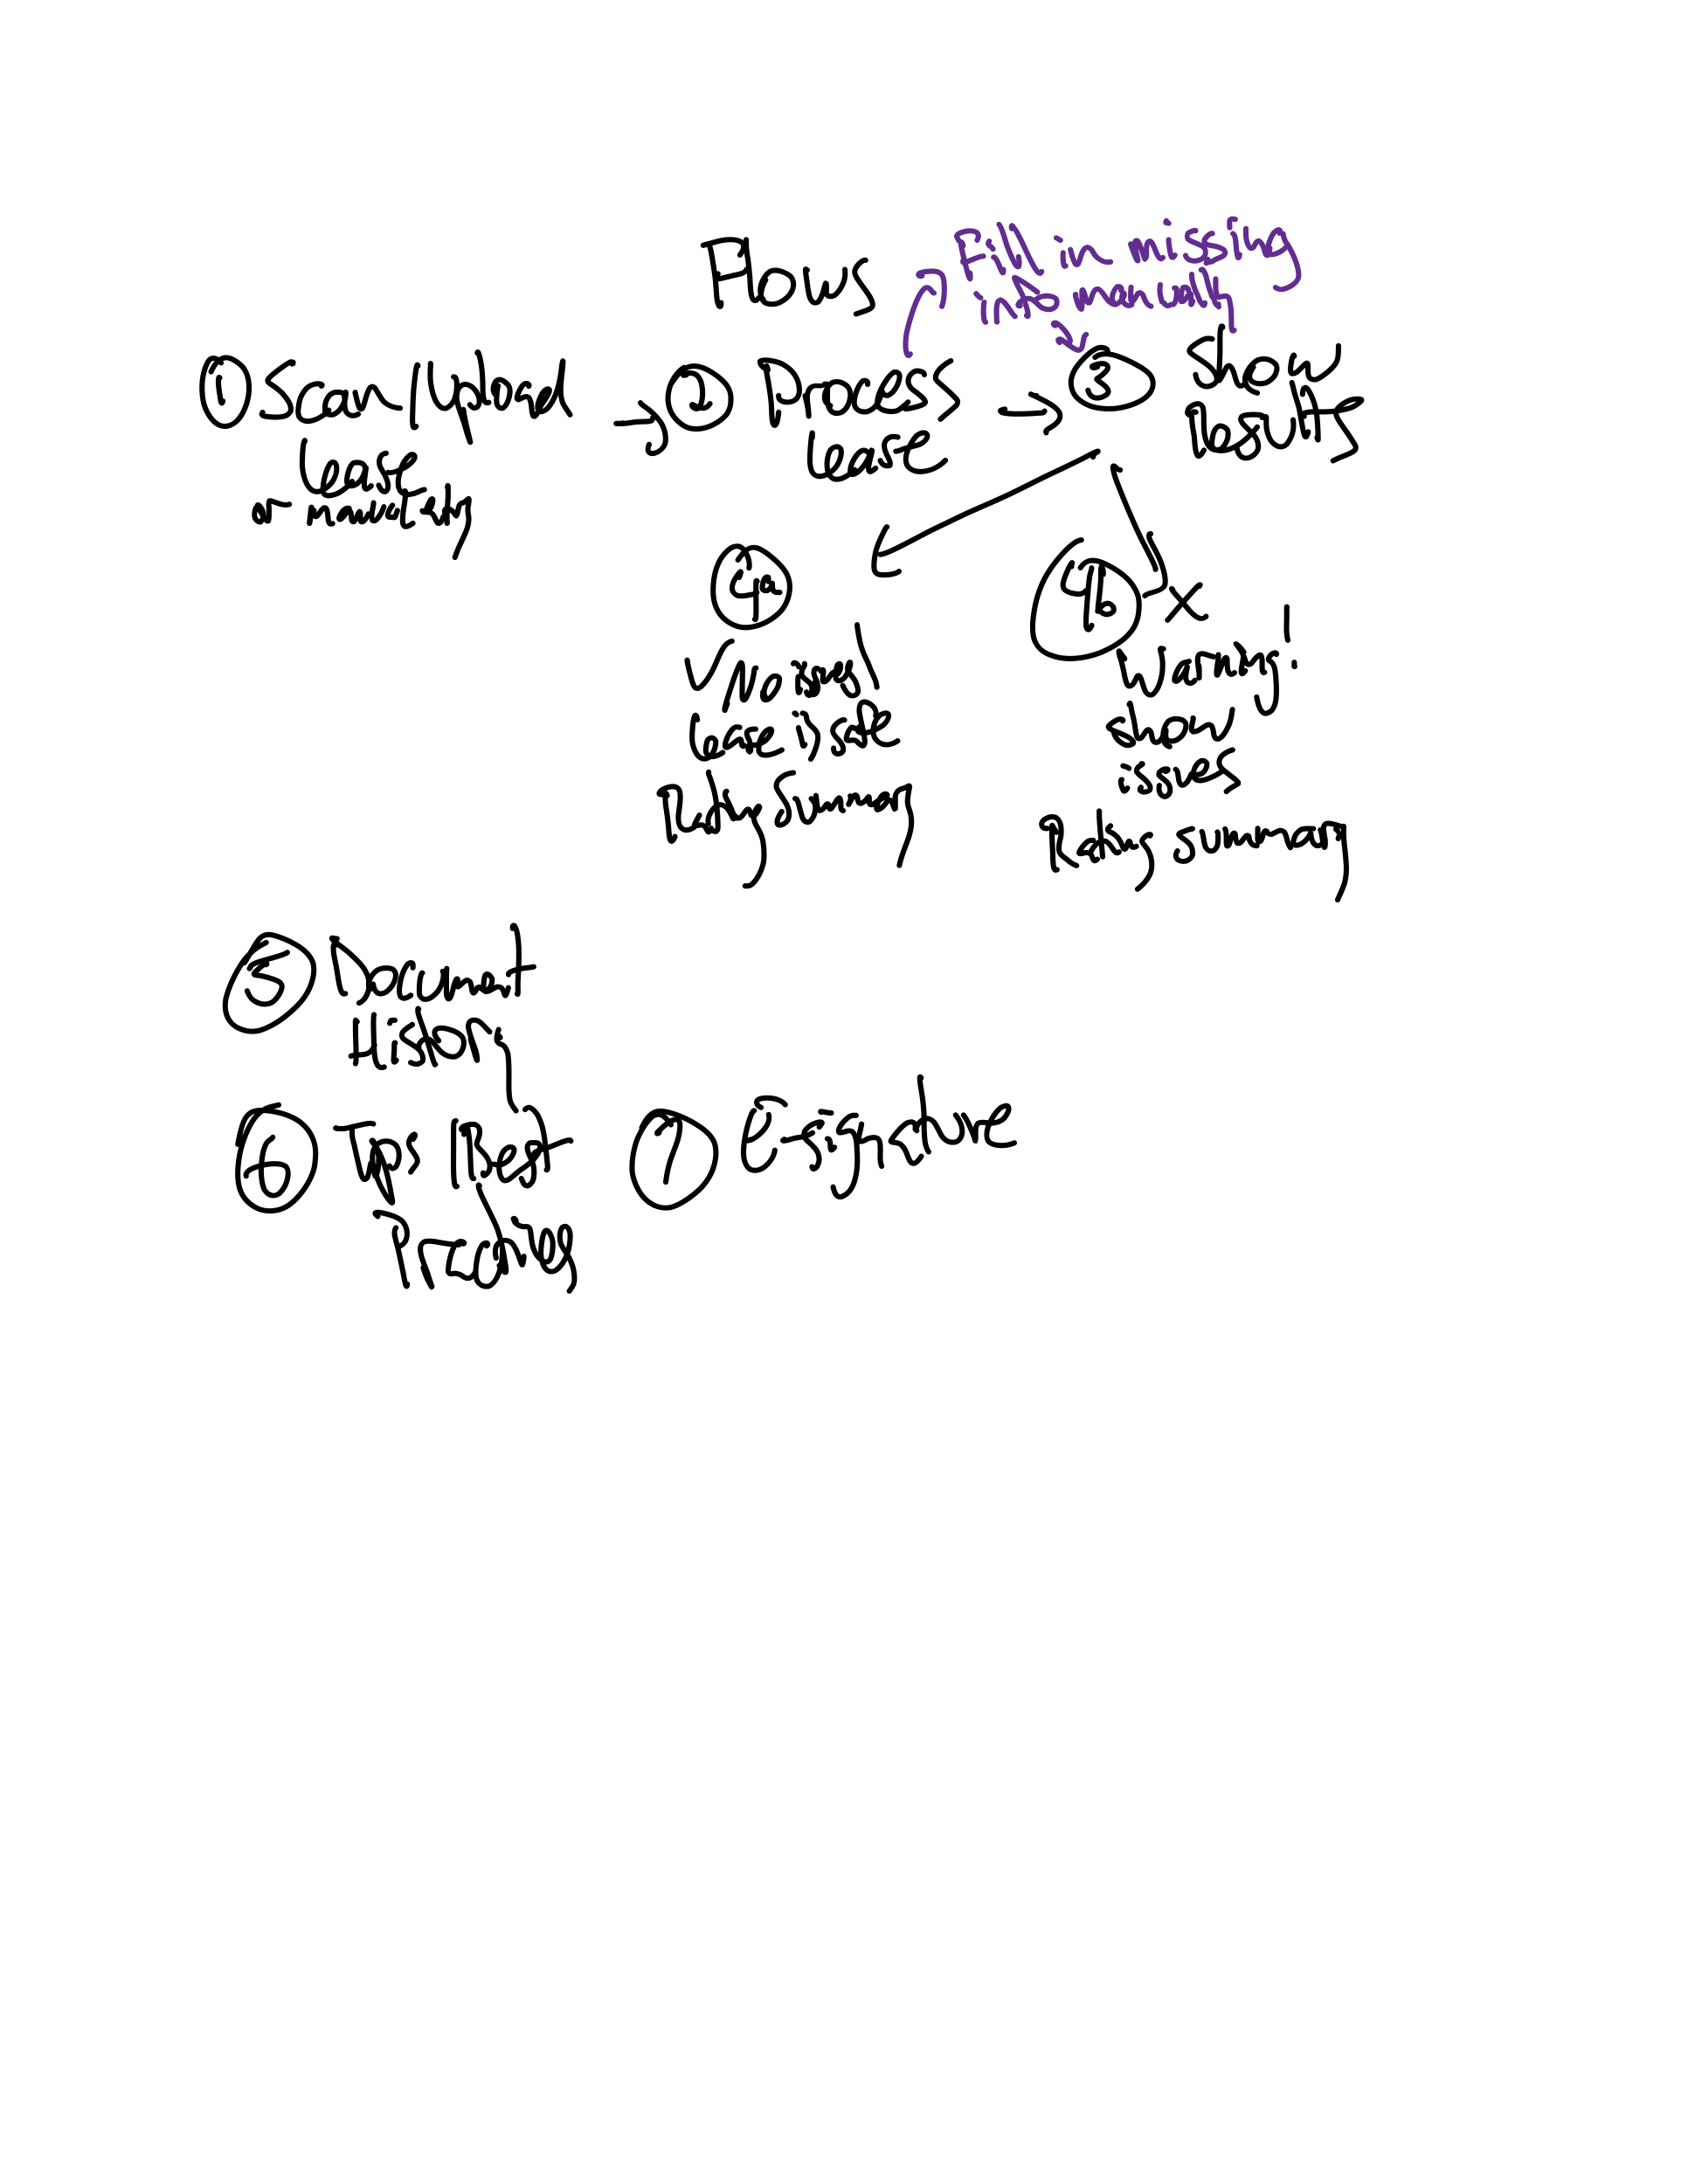 Flows
Fill in missing
info manually
① Scan/Upload
lease
or manual entry
② Process
lease
③ Show
Results
4a
✓ No issues!
Lease is safe
Rating Summary
4b X
Warning!
show
issues
Rating summary
⑤ Document
History
⑥ Tips/Best
Practices
⑦ E-signature